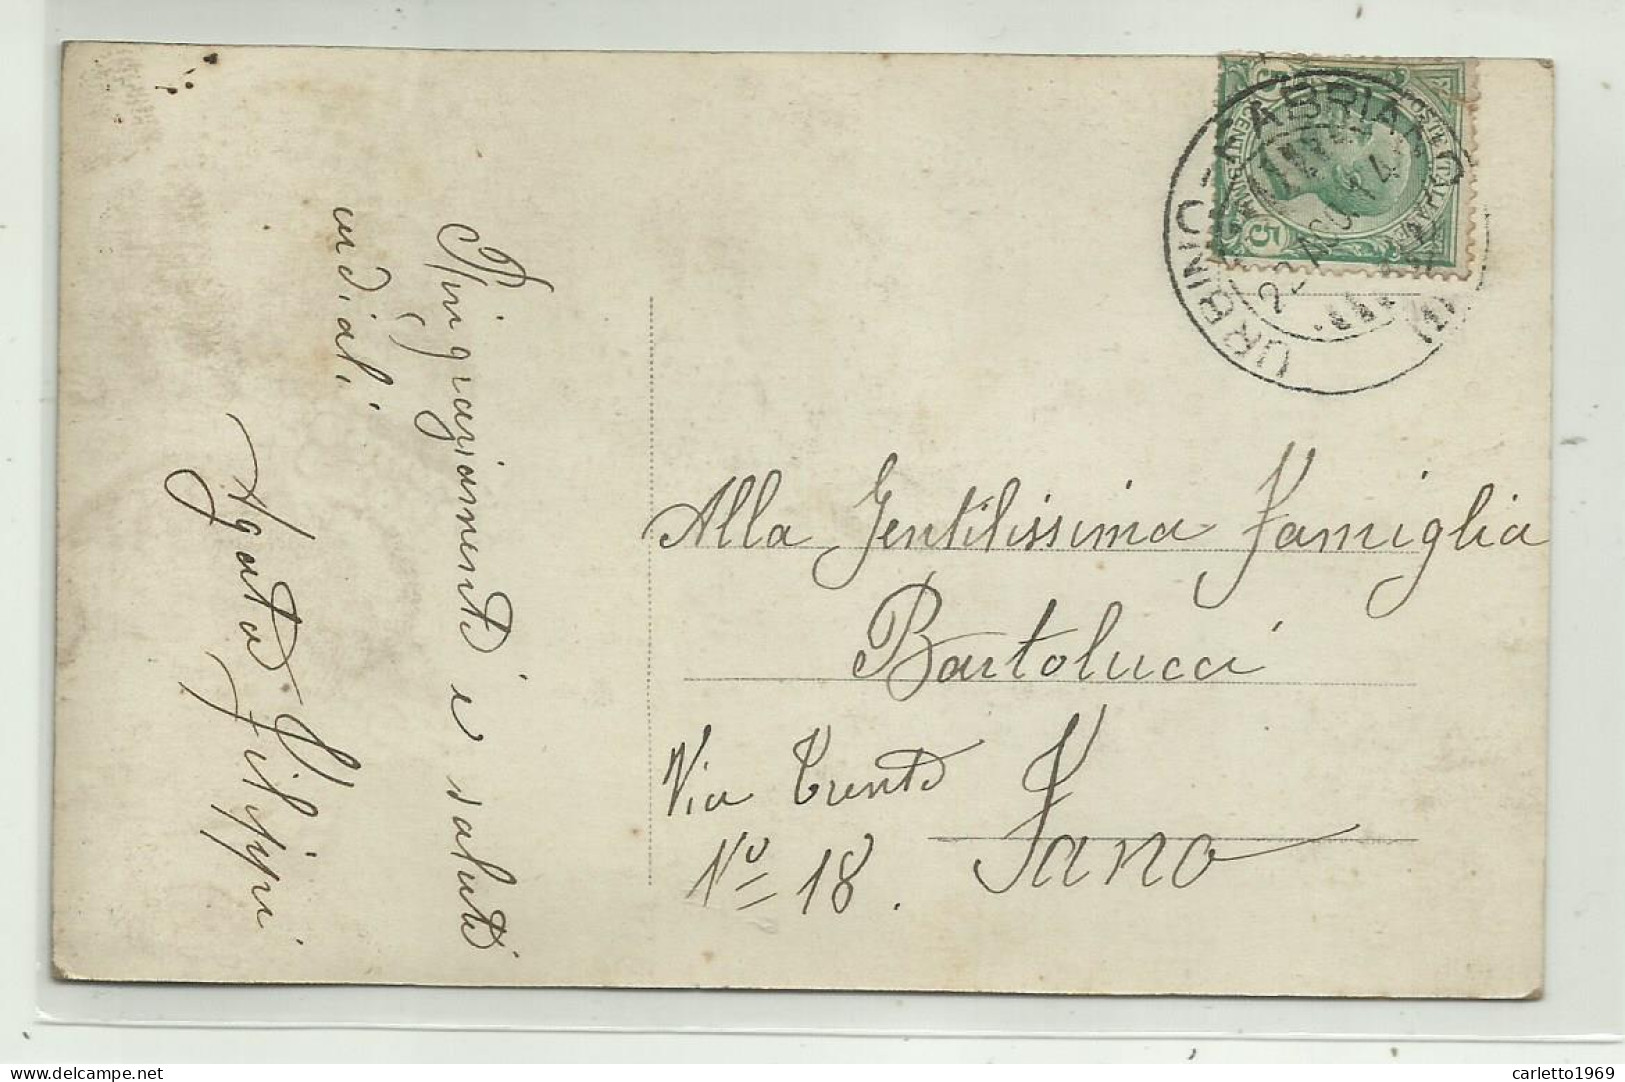 Ringraziamenti e saluti
cordiali
Agata Filippi
URBINO-FABRIANO
POSTE ITALIANE
CENTESIMI
5
(1)
Alla Gentilissima Famiglia
Bartolucci
Via Trento
Fano
No 18.
delcampe.net
carletto1969